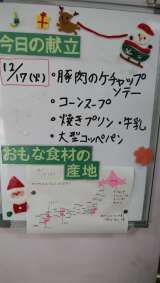 今日の献立
12/17(火)
・豚肉のケチャップ
ソテー
・コーンスープ
・焼きプリン・牛乳
・大型コッペパン
おもな食材の
産地